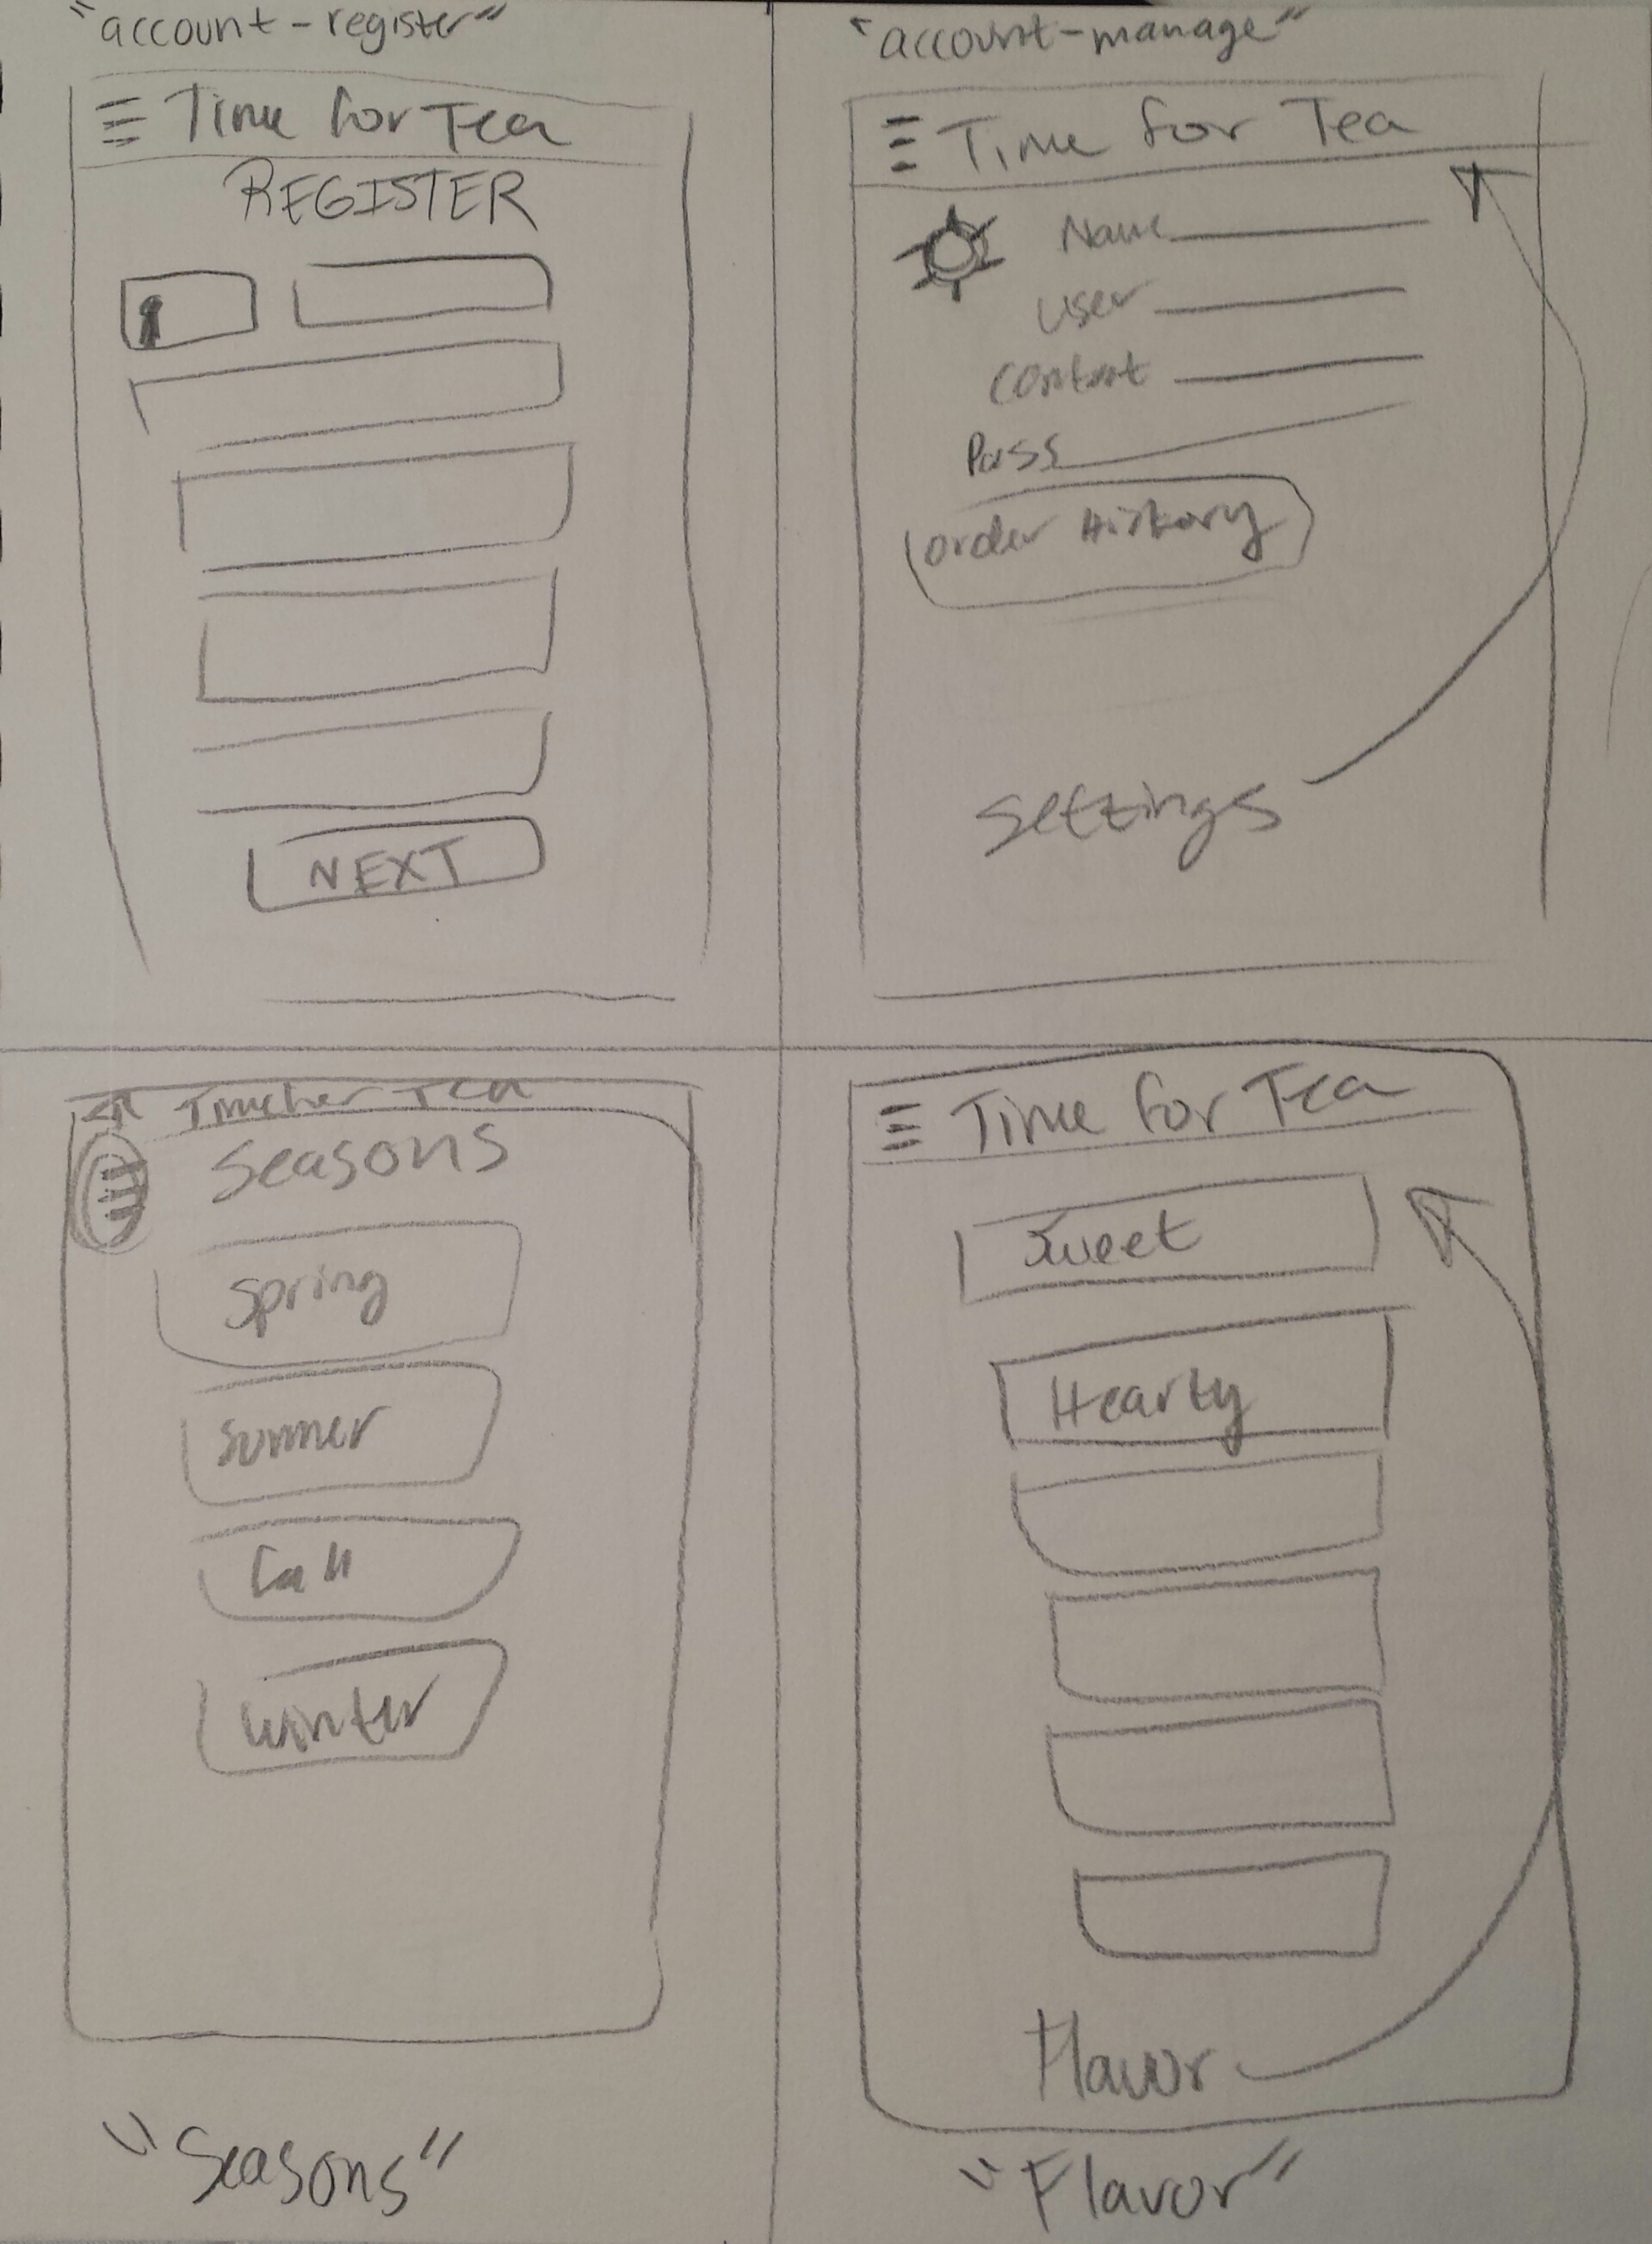 "account-register"
Time for Tea
REGISTER
NEXT
"account-manage"
Time for Tea
Name
User
Contact
Pass
Order History
Settings
Time for Tea
Seasons
Spring
Summer
Fall
Winter
"Seasons"
Time for Tea
Sweet
Hearty
Flavor
"Flavor"